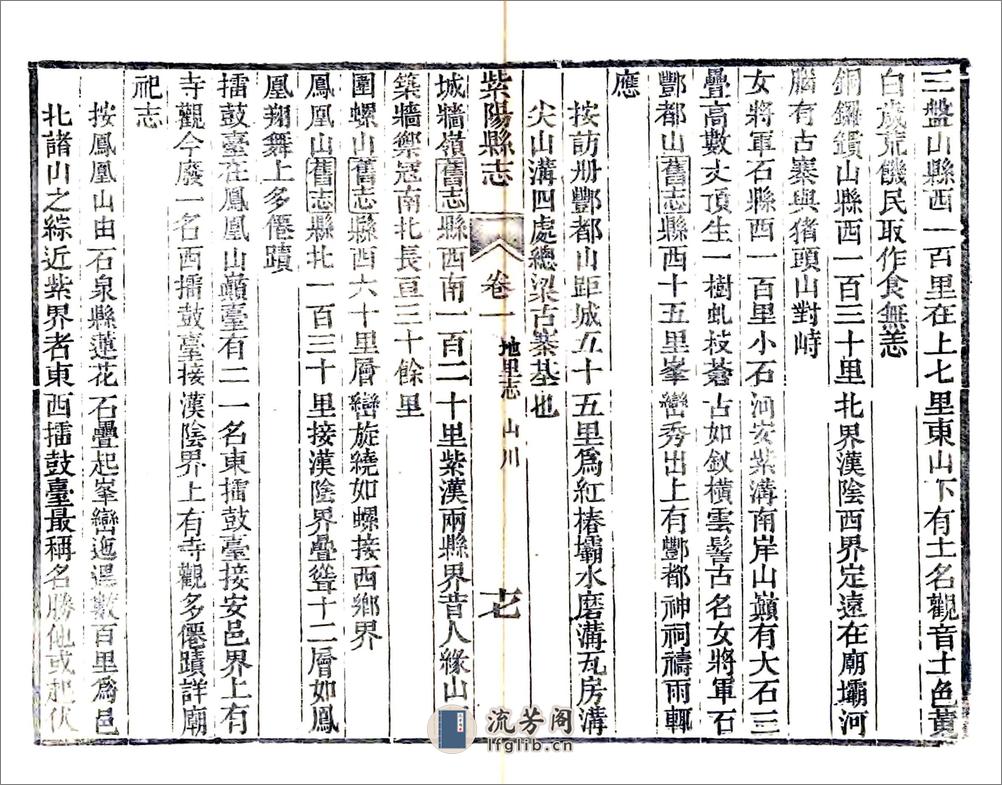 三盤山縣西一百里在上七里東山下有土名觀音土色黃
白歲荒饑民取作食無恙
銅鑼鑽山縣西一百三十里北界漢陰西界定遠在廟壩河
腦有古寨與猪頭山對峙
女將軍石縣西一百里小石河安紫溝南岸山巔有大石三
疊高數丈頂生一樹虬枝蒼古如釵橫雲髻古名女將軍石
酆都山舊志縣西十五里峯巒秀出上有酆都神祠禱雨輒
應
按訪册酆都山距城五十五里爲紅椿壩水磨溝瓦房溝
尖山溝四處總梁古寨基也
紫陽縣志
卷一
地里志 山川
十七
城牆嶺舊志縣西南一百二十里紫漢兩縣界昔人緣山
築牆禦寇南北長亘三十餘里
圍螺山舊志縣西六十里層巒旋繞如螺接西鄉界
鳳凰山舊志縣北一百三十里接漢陰界疊聳十二層如鳳
凰翔舞上多僊蹟
擂鼓臺在鳳凰山巔臺有二一名東擂鼓臺接安邑界上有
寺觀今廢一名西擂鼓臺接漢陰界上有寺觀多僊蹟詳廟
祀志
按鳳凰山由石泉縣蓮花石疊起峯巒迤邐數百里爲邑
北諸山之綜近紫界者東西擂鼓臺最稱名勝他或起伏
流芳阁
lfglib.cn